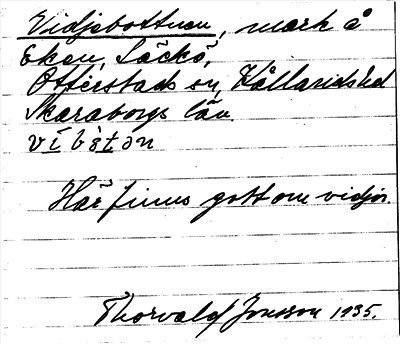 Vidjebottnen, mark å
Eken, Läckö,
Otterstads sn, Kållandshd
Skaraborgs län.
Här finns gott om vidjor.
Thorvald Jonsson 1935.